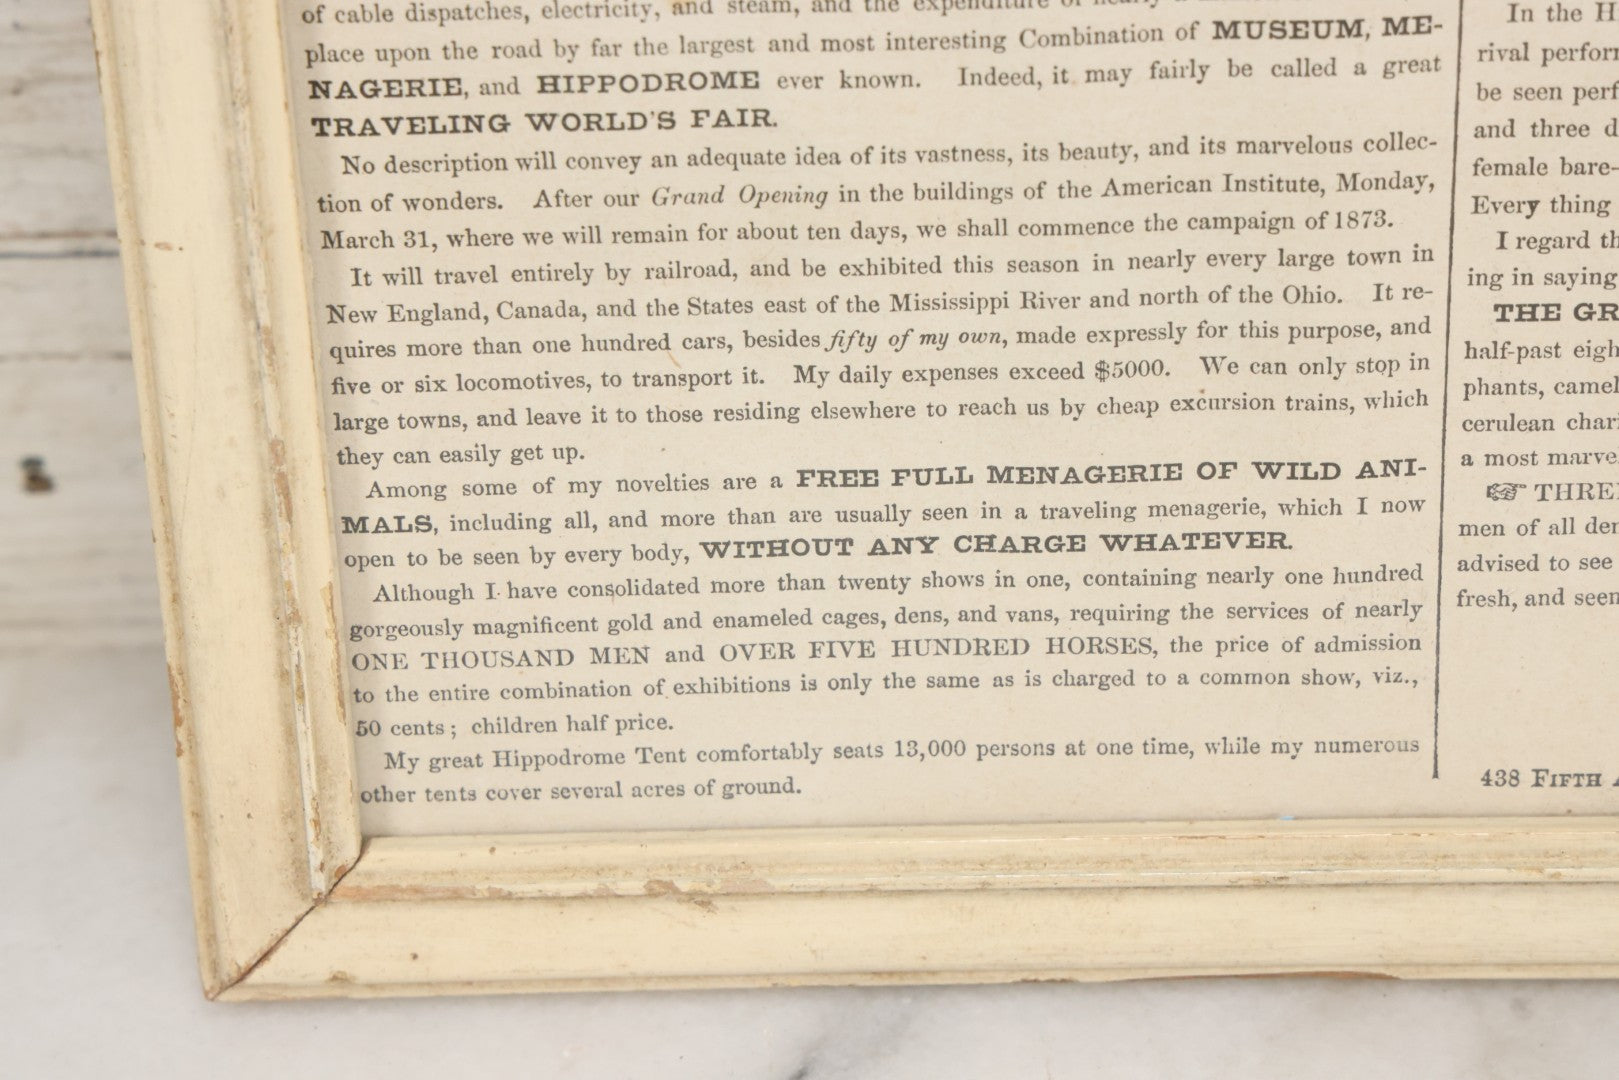 of cable dispatches, electricity, and steam, and the expenditure of nearly a
place upon the road by far the largest and most interesting Combination of MUSEUM, ME-
NAGERIE, and HIPPODROME ever known. Indeed, it may fairly be called a great
TRAVELING WORLD'S FAIR.
No description will convey an adequate idea of its vastness, its beauty, and its marvelous collec-
tion of wonders. After our Grand Opening in the buildings of the American Institute, Monday,
March 31, where we will remain for about ten days, we shall commence the campaign of 1873.
It will travel entirely by railroad, and be exhibited this season in nearly every large town in
New England, Canada, and the States east of the Mississippi River and north of the Ohio. It re-
quires more than one hundred cars, besides fifty of my own, made expressly for this purpose, and
five or six locomotives, to transport it. My daily expenses exceed $5000. We can only stop in
large towns, and leave it to those residing elsewhere to reach us by cheap excursion trains, which
they can easily get up.
Among some of my novelties are a FREE FULL MENAGERIE OF WILD ANI-
MALS, including all, and more than are usually seen in a traveling menagerie, which I now
open to be seen by every body, WITHOUT ANY CHARGE WHATEVER.
Although I have consolidated more than twenty shows in one, containing nearly one hundred
gorgeously magnificent gold and enameled cages, dens, and vans, requiring the services of nearly
ONE THOUSAND MEN and OVER FIVE HUNDRED HORSES, the price of admission
to the entire combination of exhibitions is only the same as is charged to a common show, viz.,
50 cents; children half price.
My great Hippodrome Tent comfortably seats 13,000 persons at one time, while my numerous
other tents cover several acres of ground.
In the H
rival perfor
be seen perf
and three d
female bare-
Every thing
I regard th
ing in saying
THE GR
half-past eigh
phants, camel
cerulean char
a most marve
☞ THREE
men of all den
advised to see
fresh, and seen
438 FIFTH A